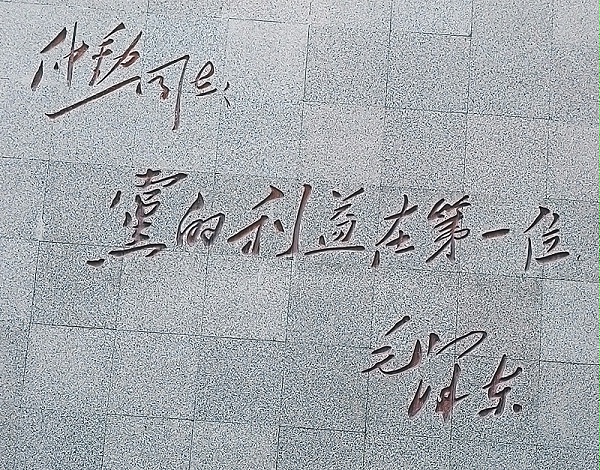 仲勲同志
黨的利益在第一位
毛澤东